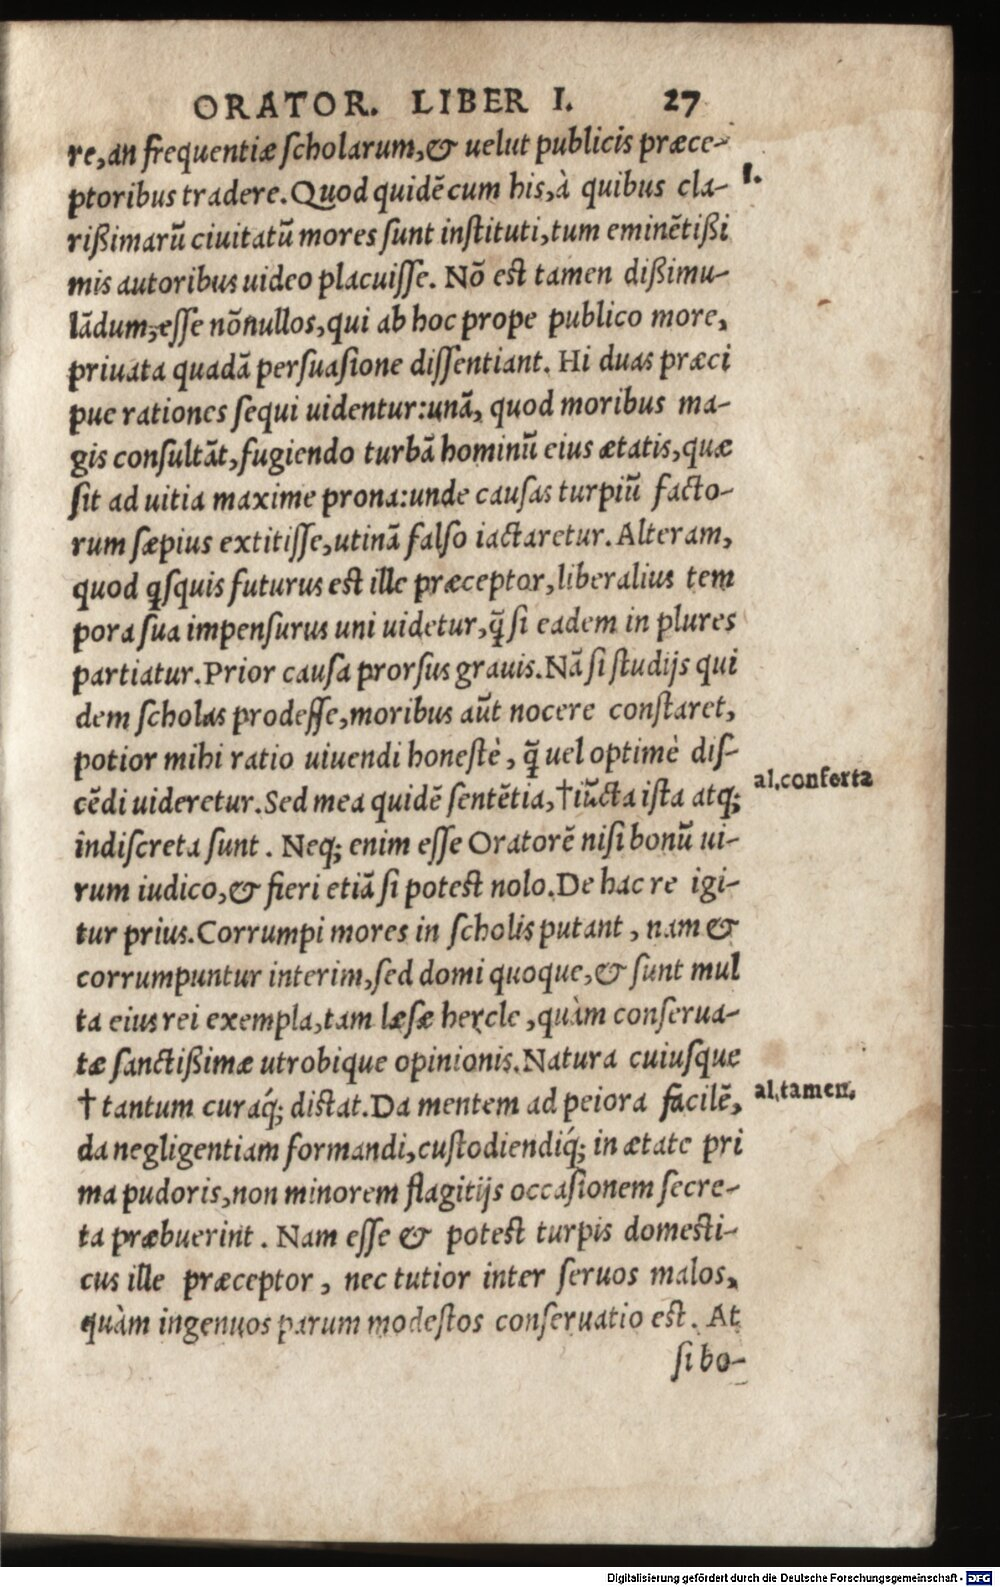 ORATOR. LIBER I. 27
re, an frequentiæ scholarum, & uelut publicis præce-
ptoribus tradere. Quod quidē cum his, à quibus cla- 1.
rißimarū ciuitatū mores sunt instituti, tum eminētißi
mis autoribus uideo placuisse. Nō est tamen dißimu-
lādum, esse nōnullos, qui ab hoc prope publico more,
priuata quadā persuasione dissentiant. Hi duas præci
pue rationes sequi uidentur: unā, quod moribus ma-
gis consultāt, fugiendo turbā hominū eius ætatis, quæ
sit ad uitia maxime prona: unde causas turpiū facto-
rum sæpius extitisse, utinā falso iactaretur. Alteram,
quod qsquis futurus est ille præceptor, liberalius tem
pora sua impensurus uni uidetur, q̄ si eadem in plures
partiatur. Prior causa prorsus grauis. Nā si studijs qui
dem scholas prodesse, moribus aūt nocere constaret,
potior mihi ratio uiuendi honestè, q̄ uel optimè dis-
cēdi uideretur. Sed mea quidē sentētia, † iūcta ista atq; al. conferta
indiscreta sunt. Neq; enim esse Oratorē nisi bonū ui-
rum iudico, & fieri etiā si potest nolo. De hac re igi-
tur prius. Corrumpi mores in scholis putant, nam &
corrumpuntur interim, sed domi quoque, & sunt mul
ta eius rei exempla, tam læsæ hercle, quàm conserua-
tæ sanctißimæ utrobique opinionis. Natura cuiusque
† tantum curaq́; distat. Da mentem ad peiora facilē, al. tamen.
da negligentiam formandi, custodiendiq́; in ætate pri
ma pudoris, non minorem flagitijs occasionem secre-
ta præbuerint. Nam esse & potest turpis domesti-
cus ille præceptor, nec tutior inter seruos malos,
quàm ingenuos parum modestos conseruatio est. At
si bo-
Digitalisierung gefördert durch die Deutsche Forschungsgemeinschaft - DFG